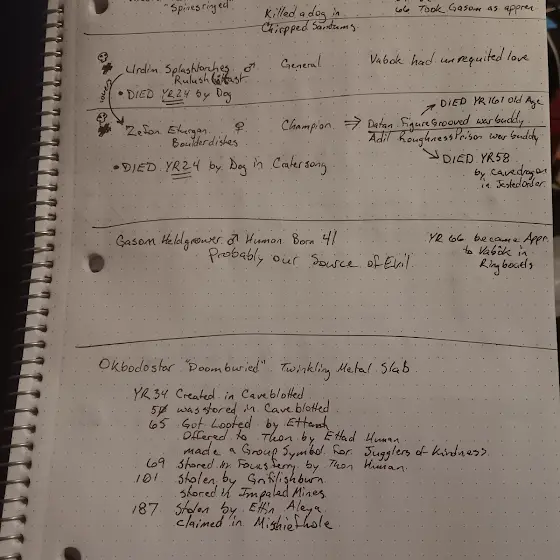 "Spinesringed"
Killed a dog in
Chipped Santums.
66 Took Gasom as appren
Urdim Splashtorches ♂ General Vabok had unrequited love
Rulush
• DIED YR24 by Dog
DIED YR 161 old Age
Zefon Eturgan ♀ Champion ⇒ Datan FigureGrooved war buddy
Boulderdishes Adil RoughnessPrison war buddy
• DIED YR24 by Dog in Cratersong
DIED YR58
by cavedragon
in JestedOrder.
Gasom Heldgrower ♂ Human Born 41 YR 66 became Appr.
Probably our Source of Evil to Vabôk in
Ringboats
Okbodostar "Doomburied" Twinkling Metal Slab
YR 34 Created in Caveblotted
was stored in Caveblotted
65 Got Looted by
Offered to Thon by Ettad Human
made a Group Symbol for Jugglers of Kindness
69 stored in by Thon Human.
101 Stolen by
stored in Impaled Mines
187 Stolen by Ettin Aleya
claimed in Mischiefhole